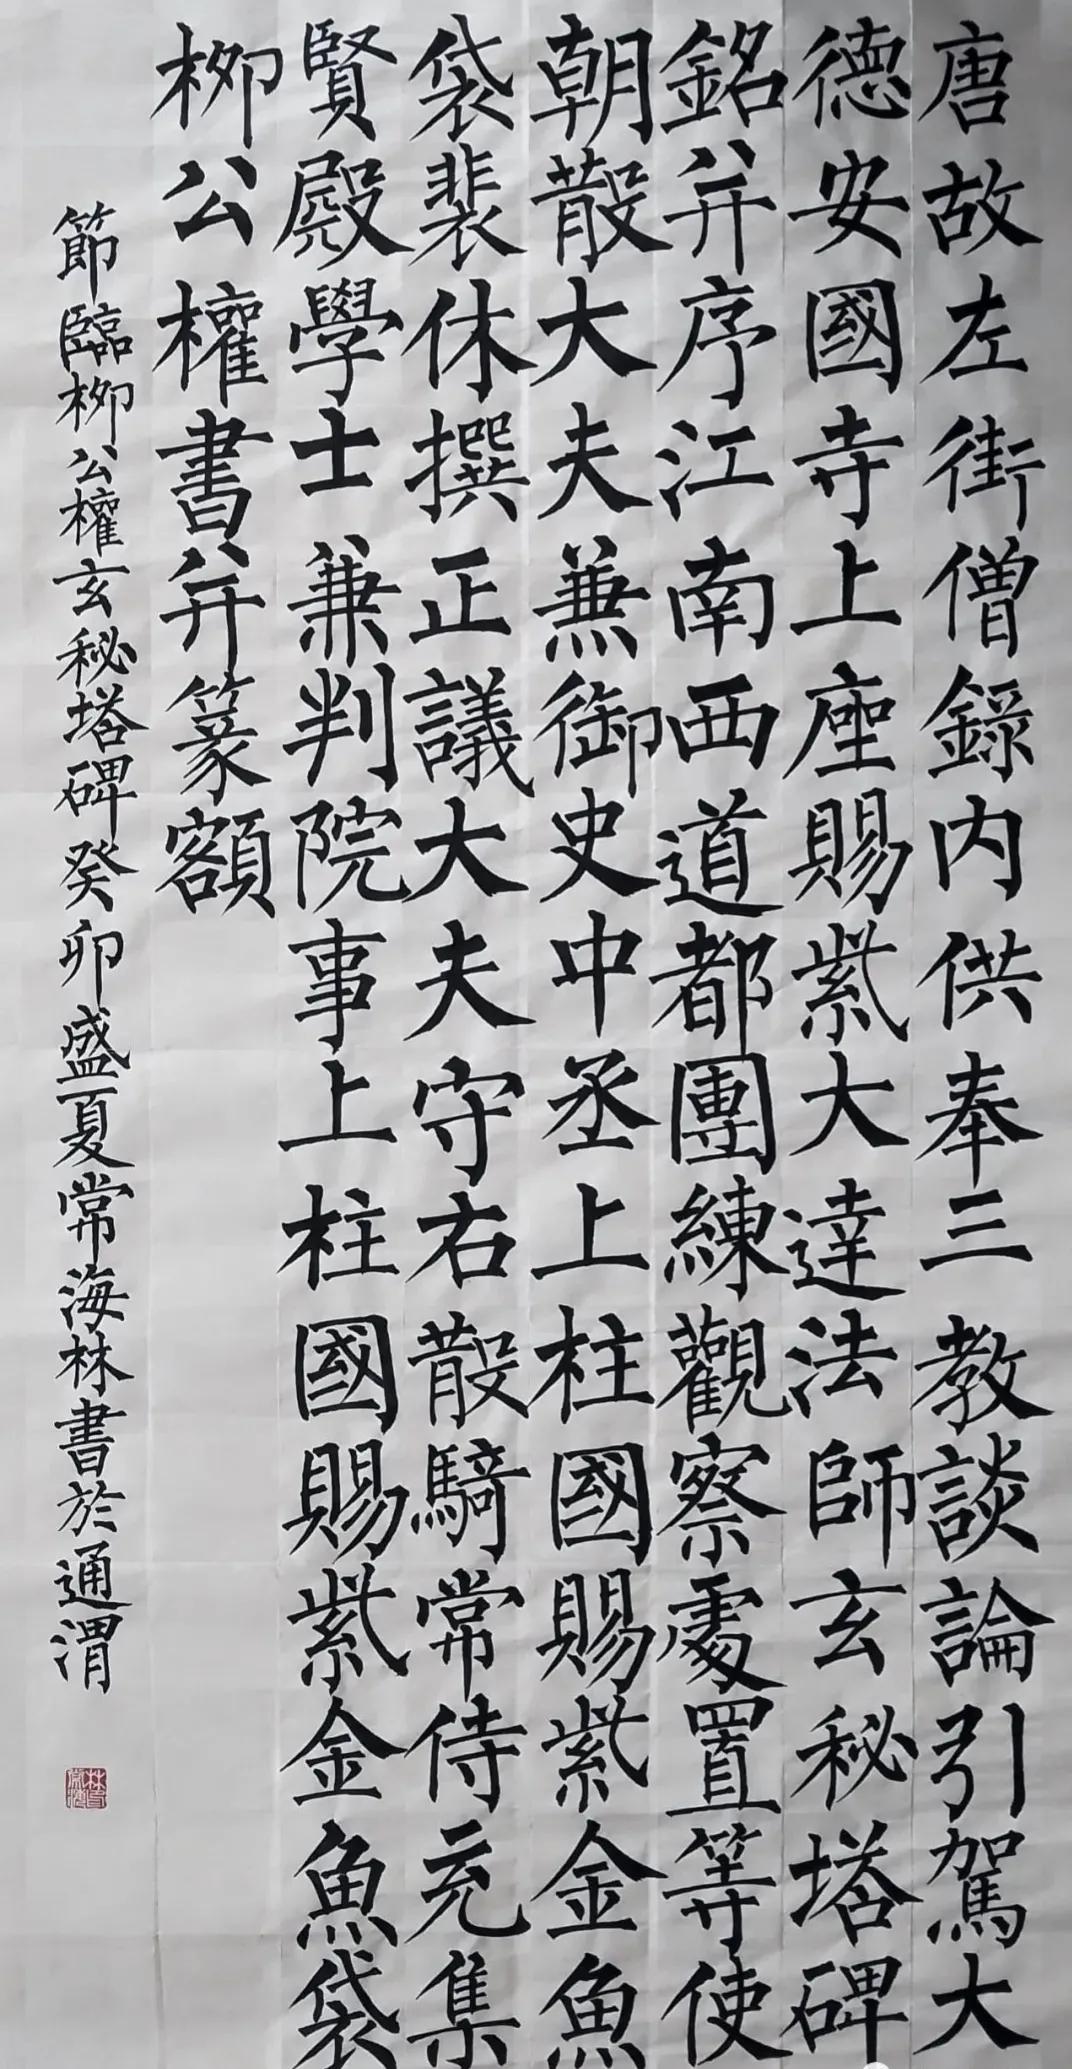 唐故左街僧錄内供奉三教談論引駕大
德安國寺上座賜紫大達法師玄秘塔碑
銘并序江南西道都團練觀察處置等使
朝散大夫兼御史中丞上柱國賜紫金魚
袋裴休撰正議大夫守右散騎常侍充集
賢殿學士兼判院事上柱國賜紫金魚袋
柳公權書并篆額
節臨柳公權玄秘塔碑癸卯盛夏常海林書於通渭